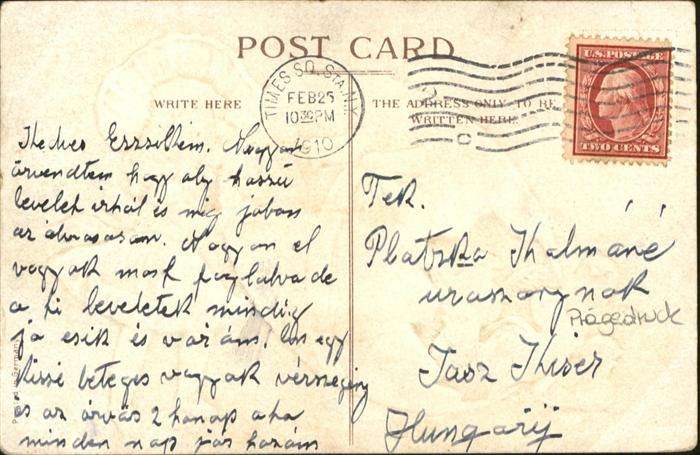 POST CARD
WRITE HERE
THE ADDRESS ONLY TO BE
WRITTEN HERE
TIMES SQ. STA. N.Y.
FEB 25
10 30 PM
1910
U.S. POSTAGE
TWO CENTS
Kedves Nagyon
örvendtem hogy oly hosszú
levelet irtál és még jobban
az olvasásom. Nagyon el
vagyok most foglalva de
a ti leveletek mindig
jó esik és várom. én egy
kissé beteges vagyok vérszegény
és az orvos 2 honap óta
minden nap jár hozám
Tek.
Platzka Kálmáné
uraszonynak
Jasz Kiser
Hungarij
Prägedruck